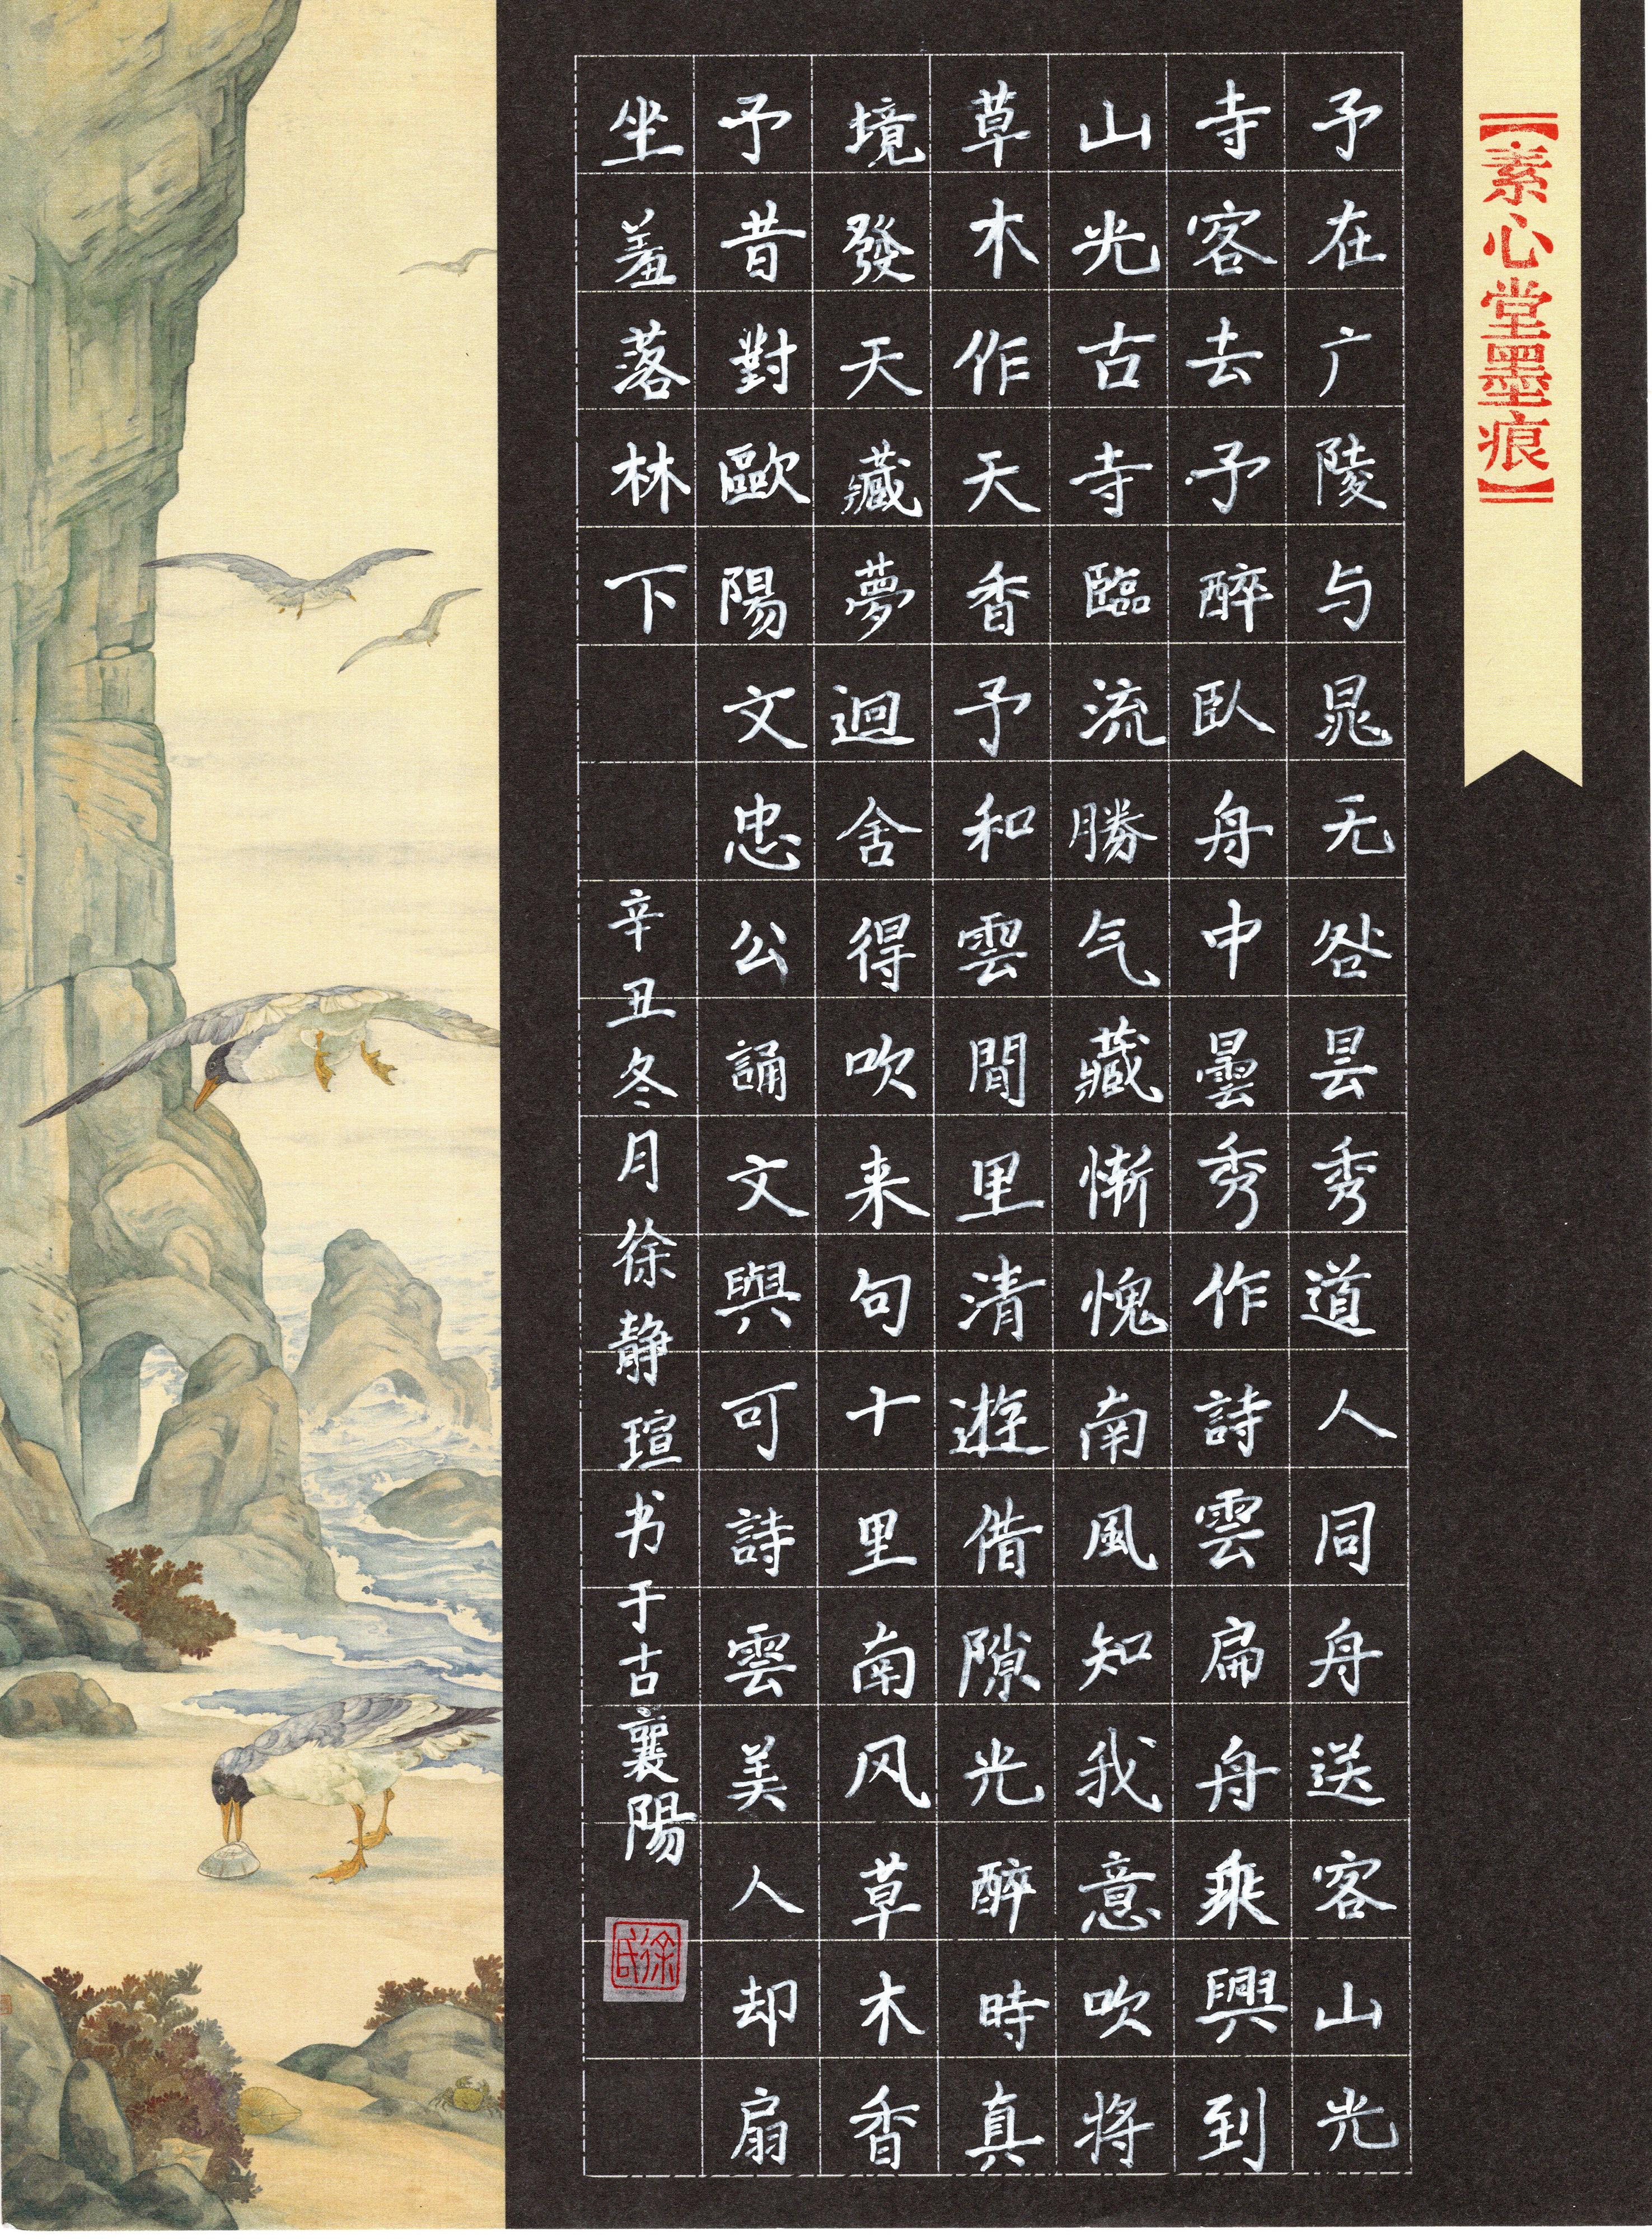 【素心堂墨痕】
予在广陵与晁无咎昙秀道人同舟送客山光
寺客去予醉臥舟中曇秀作詩雲扁舟乘興到
山光古寺臨流勝气藏慚愧南風知我意吹將
草木作天香予和雲閒里清遊借隙光醉時真
境發天藏夢迴舍得吹来句十里南风草木香
予昔對歐陽文忠公誦文與可詩雲美人却扇
坐羞落林下
辛丑冬月徐静瑄书于古襄陽
徐氏